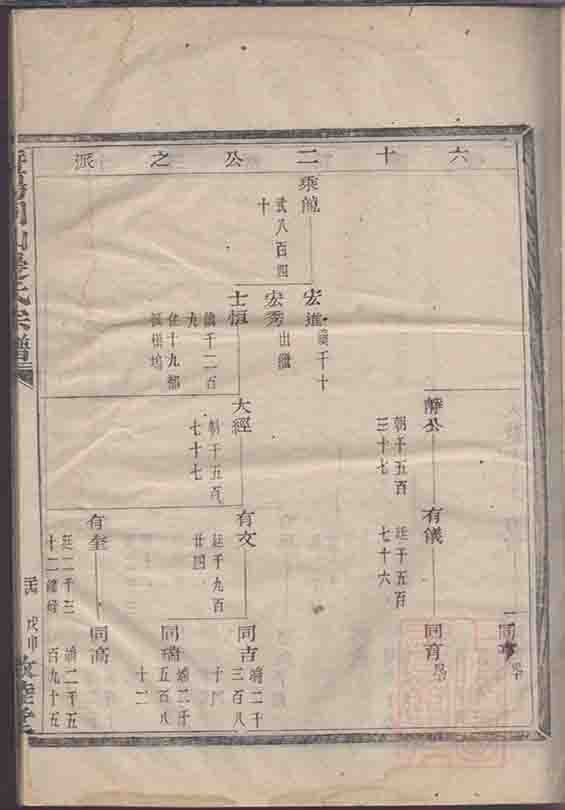 六十二公之派
秉儀
武八百四
十
宏進
千十
宏秀
出繼
士恒
千二百
九
住十九都
横塢
靜公
朝千五百
三十七
大經
朝千五百
七十七
有儀
廷千五百
七十六
有文
廷千九百
廿四
有奎
廷二千三
十二
同
早
同育
早
同吉
靖二千
三百八
同瑞
靖二千
五百八
十二
同高
靖二千五
百九十五
戊申
敦睦堂
宗譜